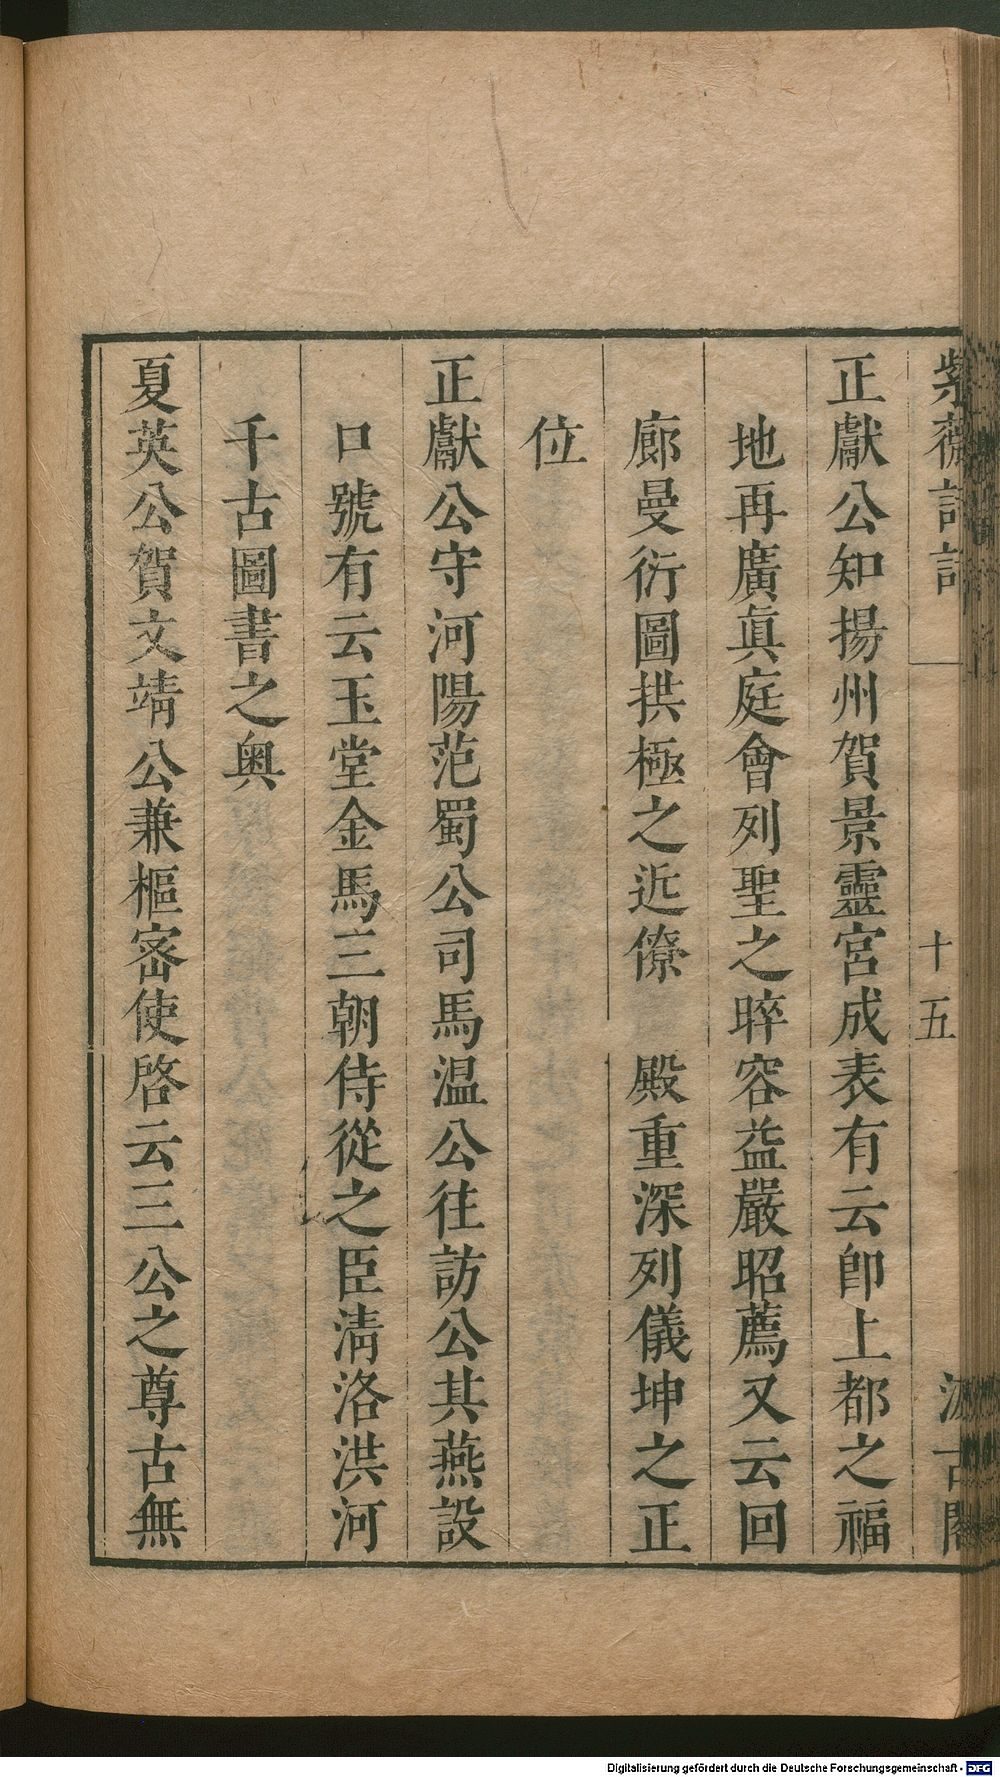 紫薇詩話
十五
汲古閣
正獻公知揚州賀景靈宮成表有云卽上都之福
地再廣眞庭會列聖之晬容益嚴昭薦又云回
廊曼衍圖拱極之近僚　殿重深列儀坤之正
位
正獻公守河陽范蜀公司馬温公往訪公其燕設
口號有云玉堂金馬三朝侍從之臣淸洛洪河
千古圖書之奥
夏英公賀文靖公兼樞宻使啓云三公之尊古無
Digitalisierung gefördert durch die Deutsche Forschungsgemeinschaft - DFG